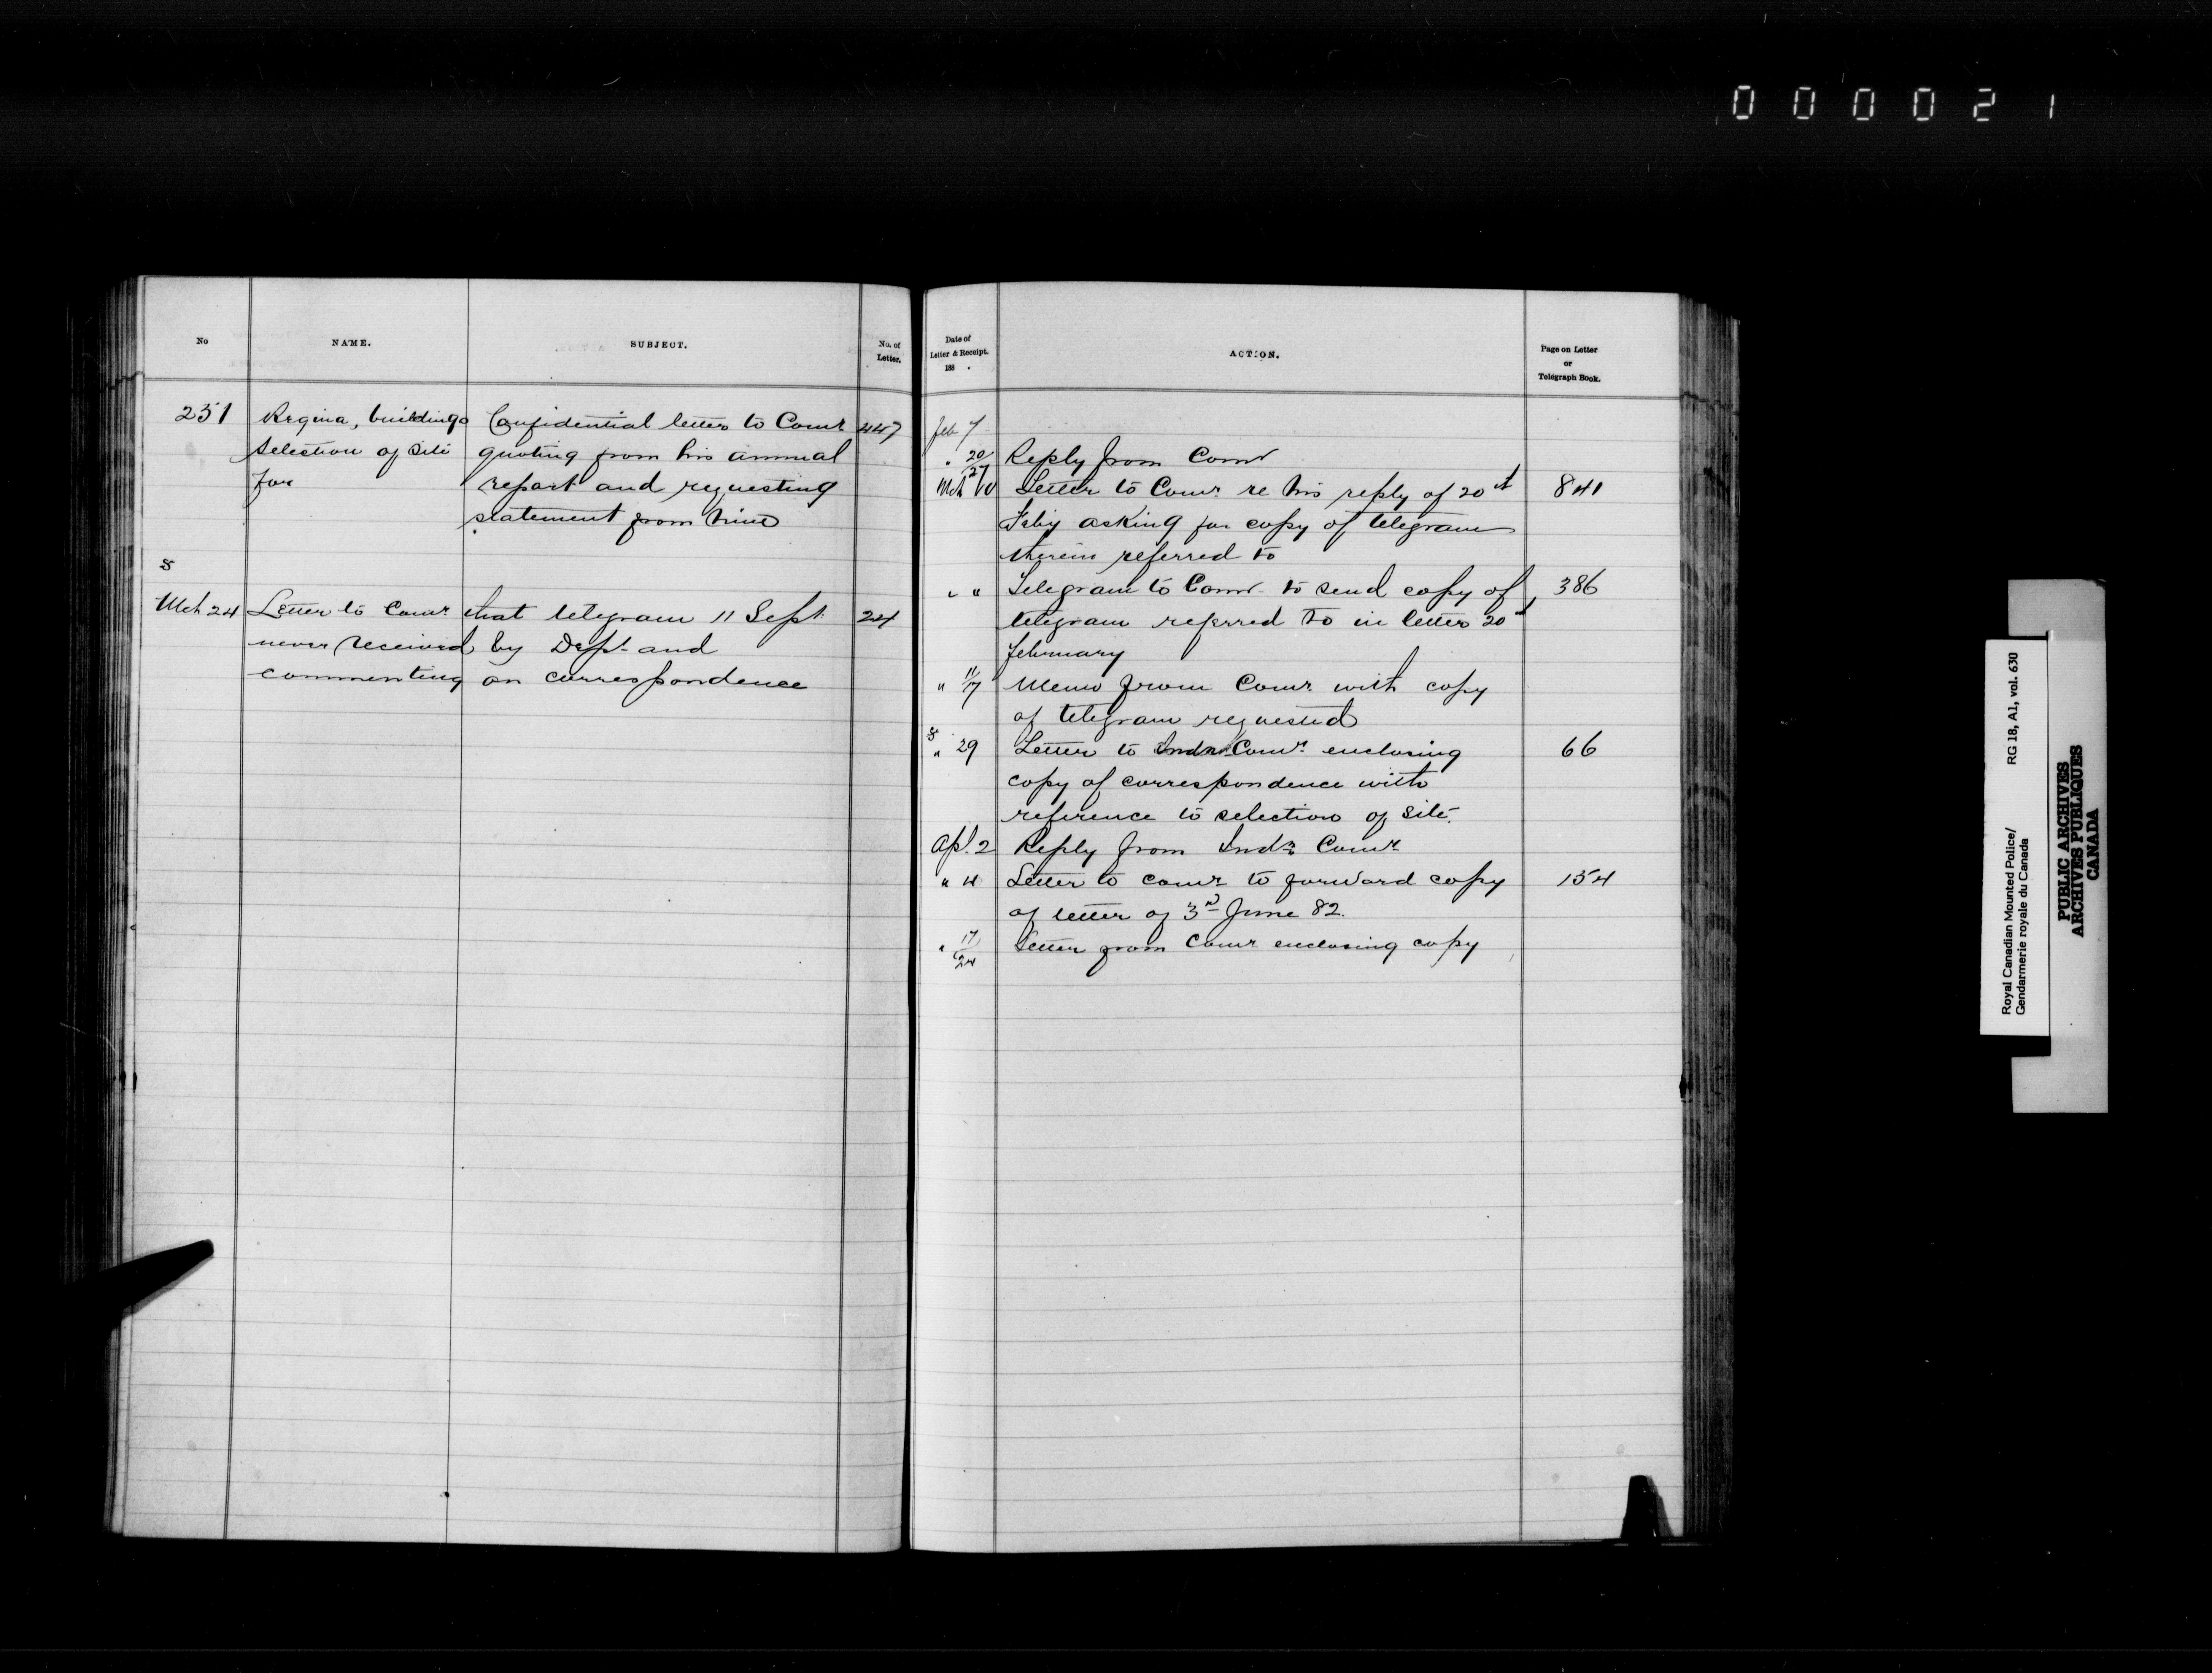 000021
No
NAME.
SUBJECT.
No. of
Letter.
251
Regina, buildings
Selection of site
for
Confidential letter to Comr
quoting from his annual
report and requesting
statement from him
447
S
Mch 24
Letter to Comr that telegram 11 Sept.
never received by Dept. and
commenting on correspondence
24
Date of
Letter & Receipt.
188 .
ACTION.
Page on Letter
or
Telegraph Book.
Feb 7
" 20/27 Reply from Comr
Mch 10 Letter to Comr. re his reply of 20th 841
Feby asking for copy of telegram
therein referred to
" " Telegram to Comr. to send copy of 386
telegram referred to in letter 20th
February
" 11/17 Memo from Comr. with copy
of telegram requested
S
" 29 Letter to Indn Comr. enclosing 66
copy of correspondence with
reference to selection of site.
Apl. 2 Reply from Indn Comr.
" 4 Letter to Comr to forward copy 154
of letter of 3rd June 82.
" 17/24 Letter from Comr enclosing copy
Royal Canadian Mounted Police/ RG 18, A1, vol. 630
Gendarmerie royale du Canada
PUBLIC ARCHIVES
ARCHIVES PUBLIQUES
CANADA